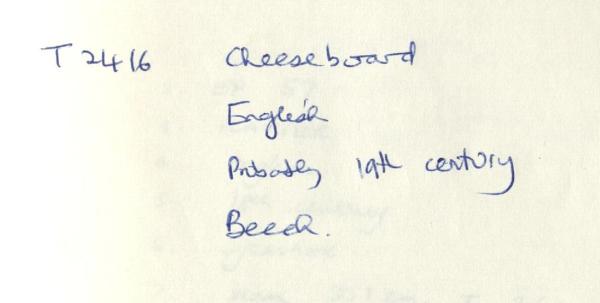 T 2416 Cheeseboard
English
Probably 19th century
Beech.